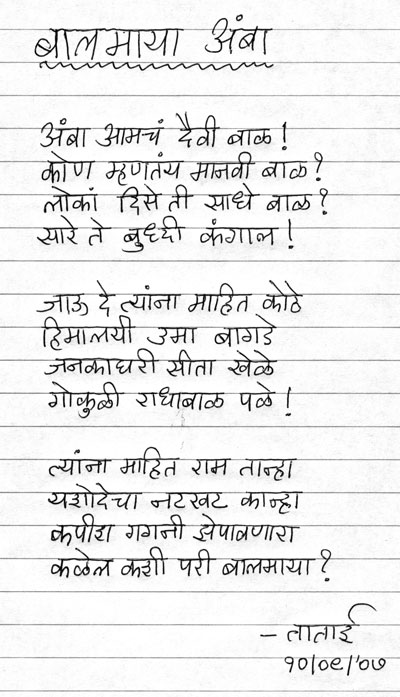 बालमाया अंबा
अंबा आमचं दैवी बाळ!
कोण म्हणतंय मानवी बाळ?
लोकां दिसे ती साधे बाळ?
सारे ते बुध्दी कंगाल!
जाऊ दे त्यांना माहित कोठे
हिमालयी उमा बागडे
जनकाघरी सीता खेळे
गोकुळी राधाबाळ पळे!
त्यांना माहित राम तान्हा
यशोदेचा नटखट कान्हा
कपीश गगनी झेपावणारा
कळेल कशी परी बालमाया?
- ताताई
१०/०९/'०७